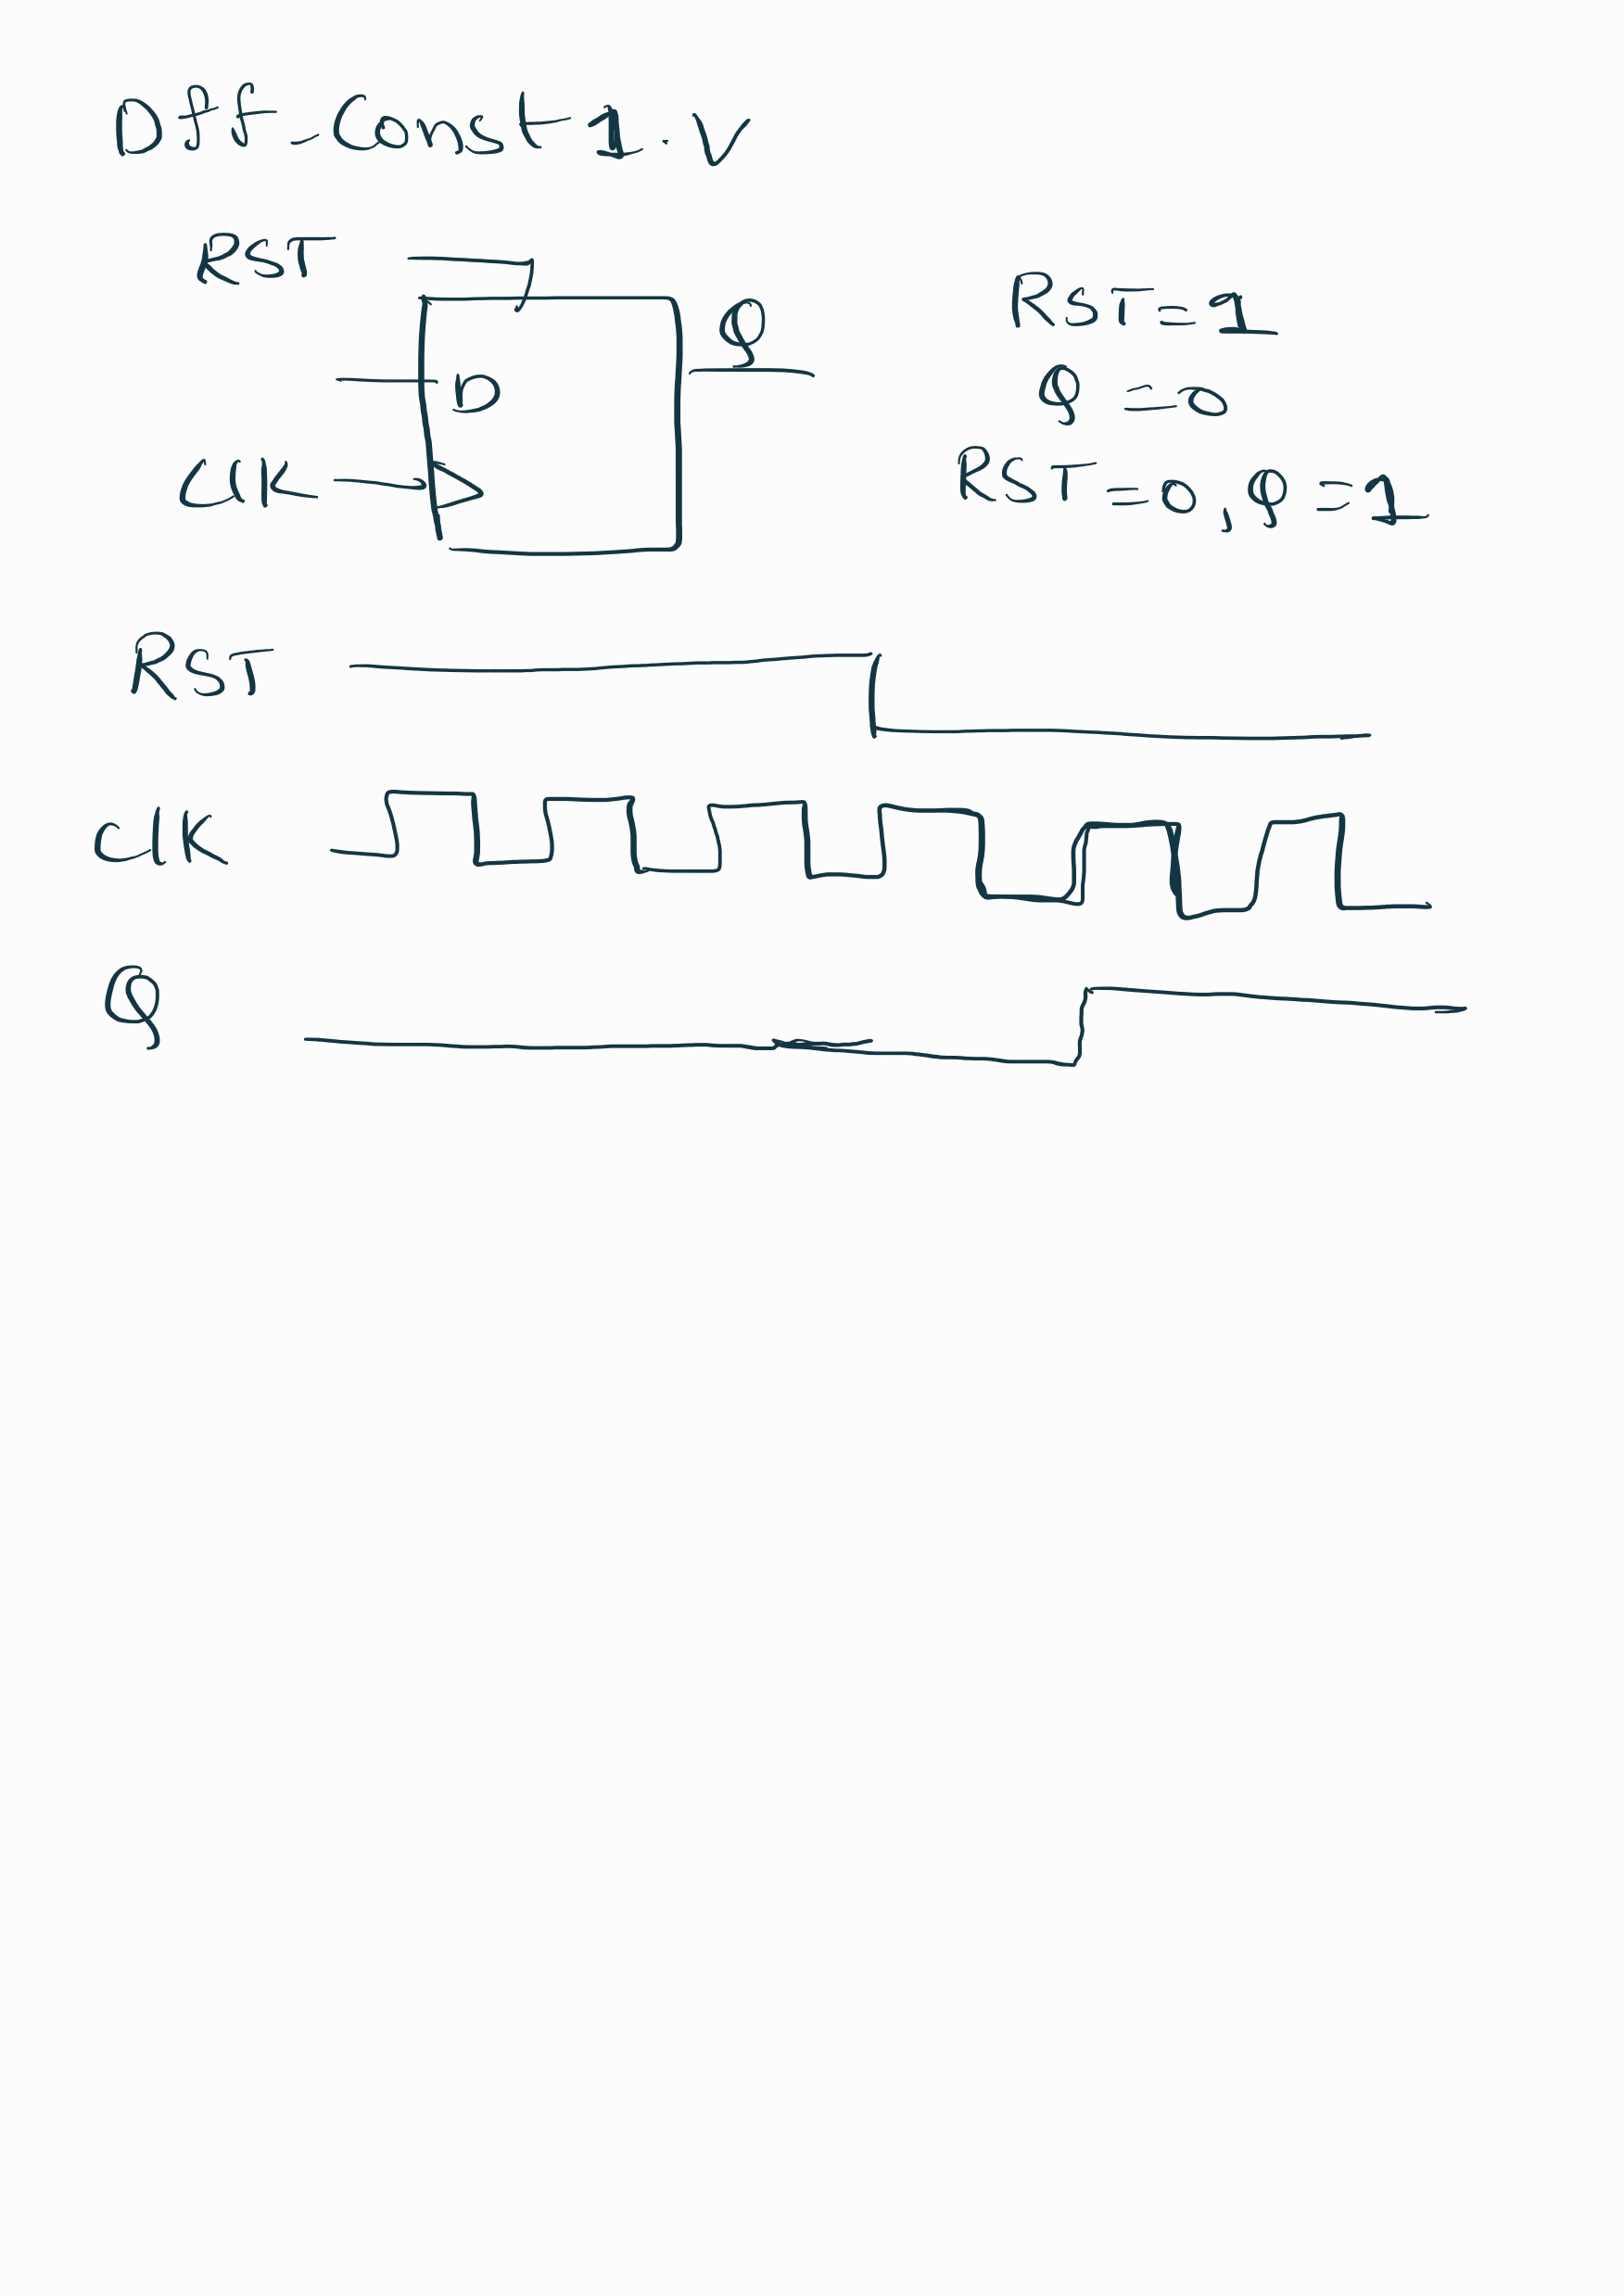 Dff_Const 1.v
RST
Q
D
CLK
RST=1
Q=0
RST=0,Q=1
RST
CLK
Q